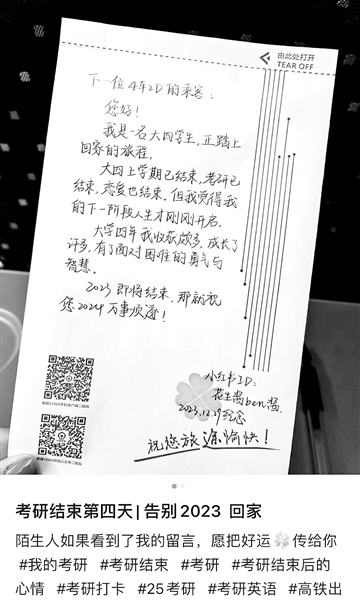 由此处打开
TEAR OFF
下一位4车2D的乘客：
您好！
我是一名大四学生，正踏上
回家的旅程。
大四上学期已结束，考研已
结束，恋爱也结束。但我觉得我
的下一阶段人生才刚刚开启。
大学四年我收获颇多，成长了
许多，有了面对困难的勇气与
智慧。
2023即将结束，那就祝
您2024万事顺遂！
小红书ID：
花生酱ben酱
纪念
祝您旅途愉快！
考研结束第四天|告别2023 回家
陌生人如果看到了我的留言，愿把好运🍀传给你
#我的考研 #考研结束 #考研 #考研结束后的
心情 #考研打卡 #25考研 #考研英语 #高铁出